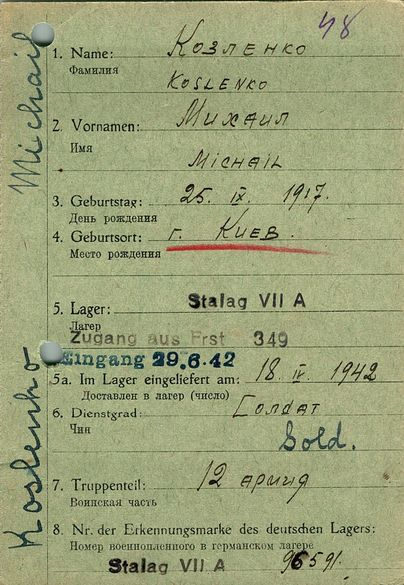 48
1. Name: Козленко
Фамилия
KOSLENKO
2. Vornamen: Михаил
Имя
MICHAIL
3. Geburtstag: 25. IX. 1917.
День рождения
4. Geburtsort: г. Киев.
Место рождения
5. Lager: Stalag VII A
Лагер
Zugang aus Frst 349
Eingang 29.6.42
5a. Im Lager eingeliefert am: 18. IV. 1942
Доставлен в лагер (число)
6. Dienstgrad: Солдат
Чин
Sold.
7. Truppenteil: 12 армия
Воинская часть
8. Nr. der Erkennungsmarke des deutschen Lagers:
Номер военнопленного в германском лагере
Stalag VII A 96591.
Koslenko Michail